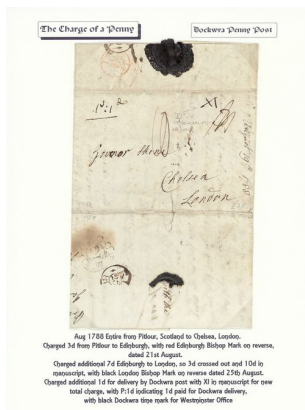 The Charge of a Penny
Dockwra Penny Post
XI
Chelsea
London
Aug 1788 Entire from Pitlour, Scotland to Chelsea, London.
Charged 3d from Pitlour to Edinburgh, with red Edinburgh Bishop Mark on reverse,
dated 21st August.
Charged additional 7d Edinburgh to London, so 3d crossed out and 10d in
manuscript, with black London Bishop Mark on reverse dated 25th August.
Charged additional 1d for delivery by Dockwra post with XI in manuscript for new
total charge, with P:1d indicating 1d paid for Dockwra delivery,
with black Dockwra time mark for Westminster Office